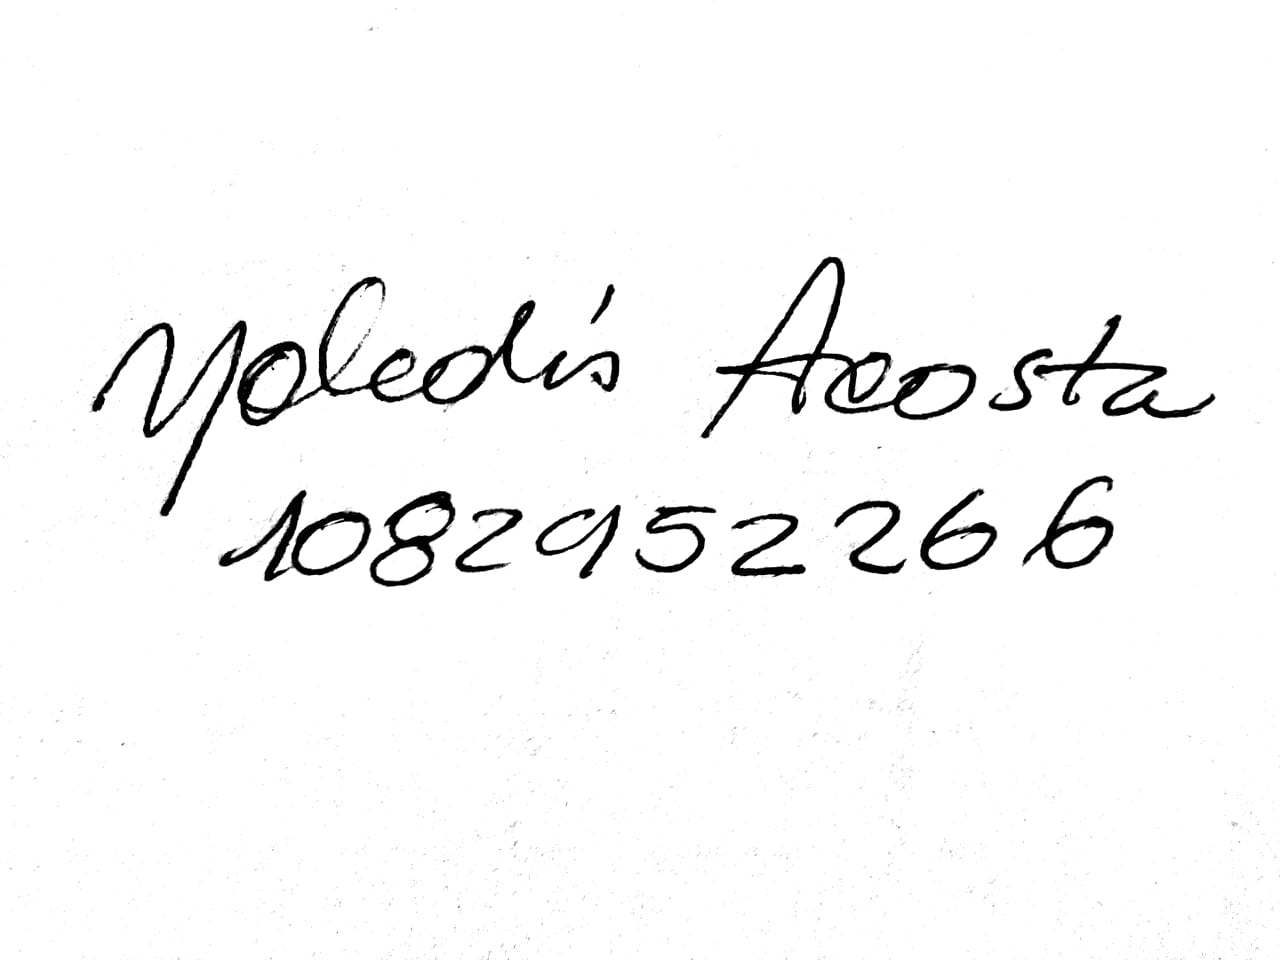 Yoledis Acosta
1082952266